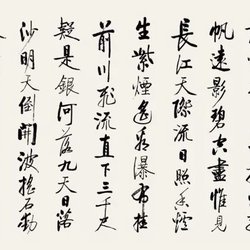 帆遠影碧空盡惟見
長江天際流日照香爐
生紫煙遙看瀑布挂
前川飛流直下三千尺
疑是銀河落九天日落
沙明天倒開波搖石動